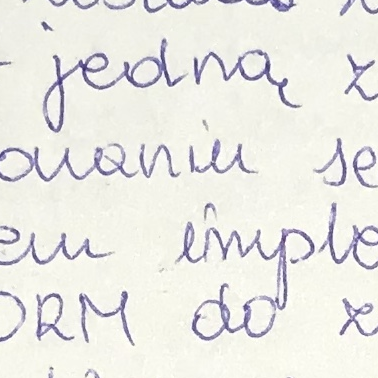 jedną z
owaniu se
em imple
ORM do z